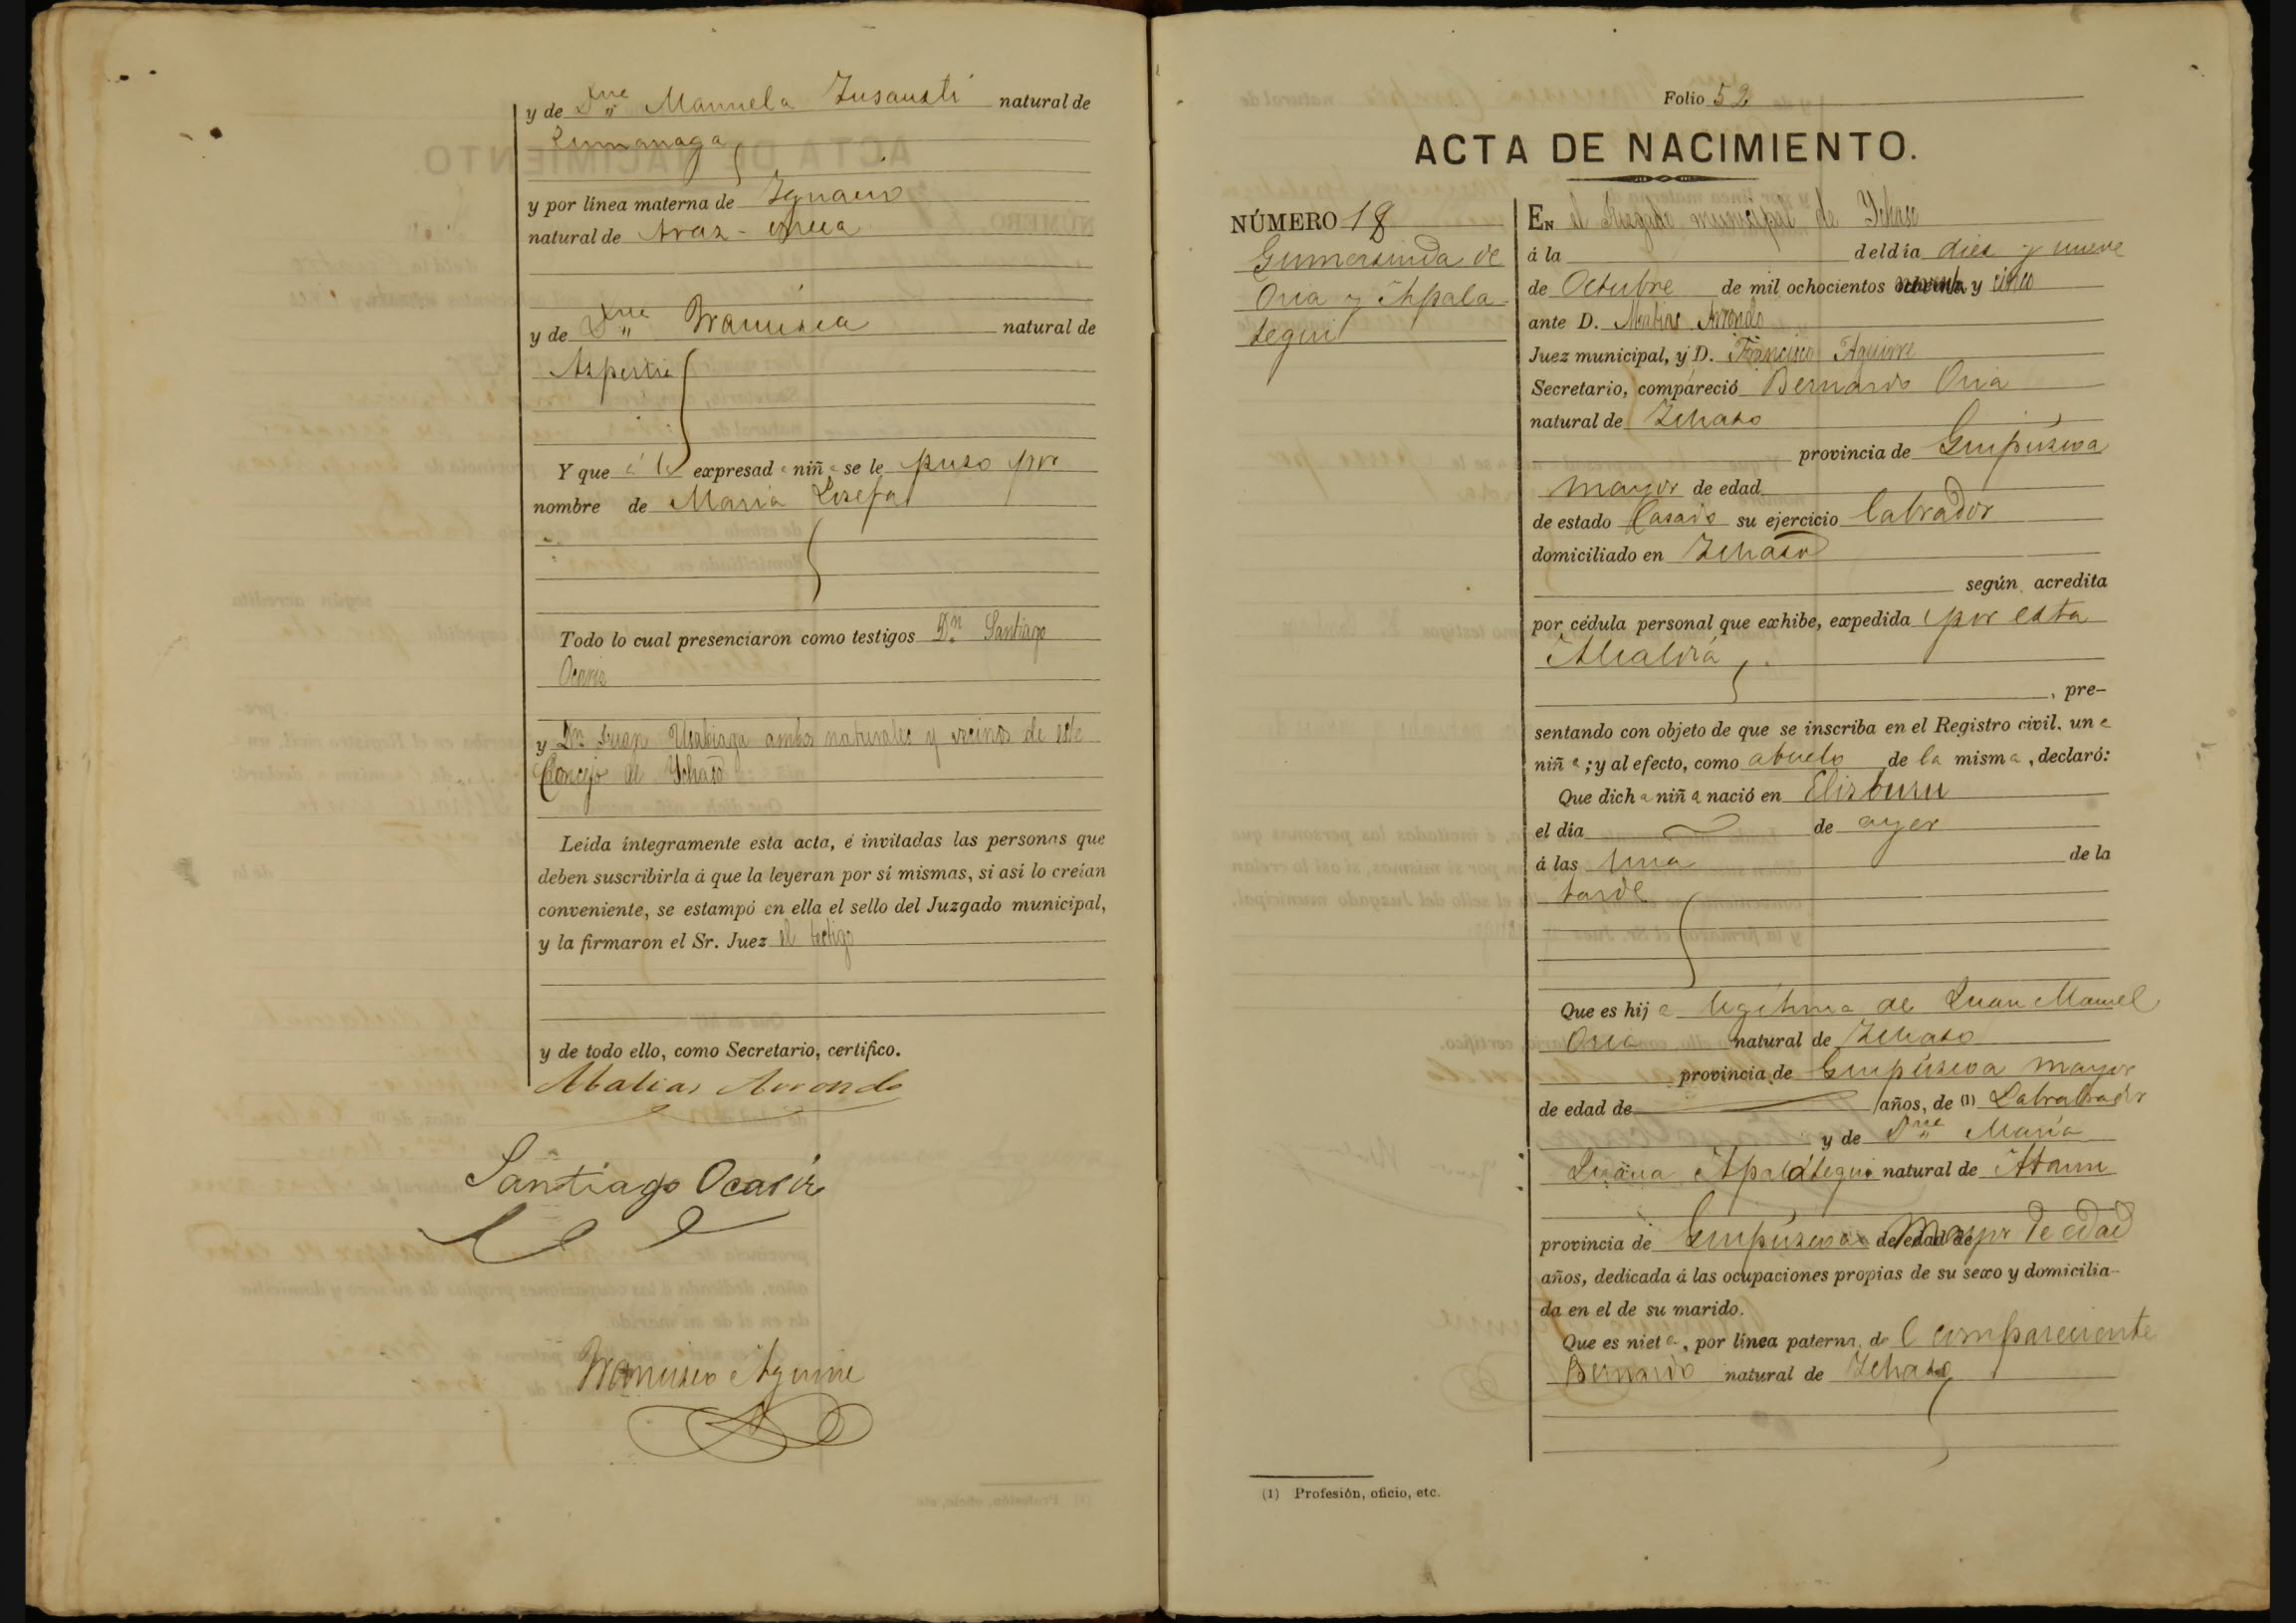 y de Dña Manuela Insausti natural de
Zumarraga
y por línea materna de Ignacio
natural de Araz-erreca
y de Dña Francisca natural de
Azpeitia
Y que á la expresad a niñ a se le puso por
nombre de Maria Josefa
Todo lo cual presenciaron como testigos Dn. Santiago
Ocariz
y Dn. Juan Usabiaga ambos naturales y vecinos de este
Concejo de Ychaso
Leída íntegramente esta acta, é invitadas las personas que
deben suscribirla á que la leyeran por sí mismas, si así lo creían
conveniente, se estampó en ella el sello del Juzgado municipal,
y la firmaron el Sr. Juez el testigo
y de todo ello, como Secretario, certifico.
Matias Arrondo
Santiago Ocariz
Francisco Aguirre
Folio 52
ACTA DE NACIMIENTO.
NÚMERO 18
Gumersinda de
Oria y Apala-
tegui
EN el Juzgado municipal de Ychaso
á la del día diez y nueve
de Octubre de mil ochocientos noventa y cinco
ante D. Matias Arrondo
Juez municipal, y D. Francisco Aguirre
Secretario, compareció Bernardo Oria
natural de Ichaso
provincia de Guipúzcoa
mayor de edad
de estado Casado su ejercicio labrador
domiciliado en Ichaso
según acredita
por cédula personal que exhibe, expedida por esta
Alcaldía
, pre-
sentando con objeto de que se inscriba en el Registro civil. un a
niñ a; y al efecto, como abuelo de la misma, declaró:
Que dich a niñ a nació en Elizburu
el día de ayer
á las una de la
tarde
Que es hij a legítima de Juan Manuel
Oria natural de Ichaso
provincia de Guipúzcoa mayor
de edad de años, de (1) Labrabrador
y de Dña María
Juana Apalategui natural de Ataun
provincia de Guipúzcoa de edad de Mayor de edad
años, dedicada á las ocupaciones propias de su sexo y domicilia-
da en el de su marido.
Que es niet a, por línea paterna, de l compareciente
Bernardo natural de Ichaso
(1) Profesión, oficio, etc.